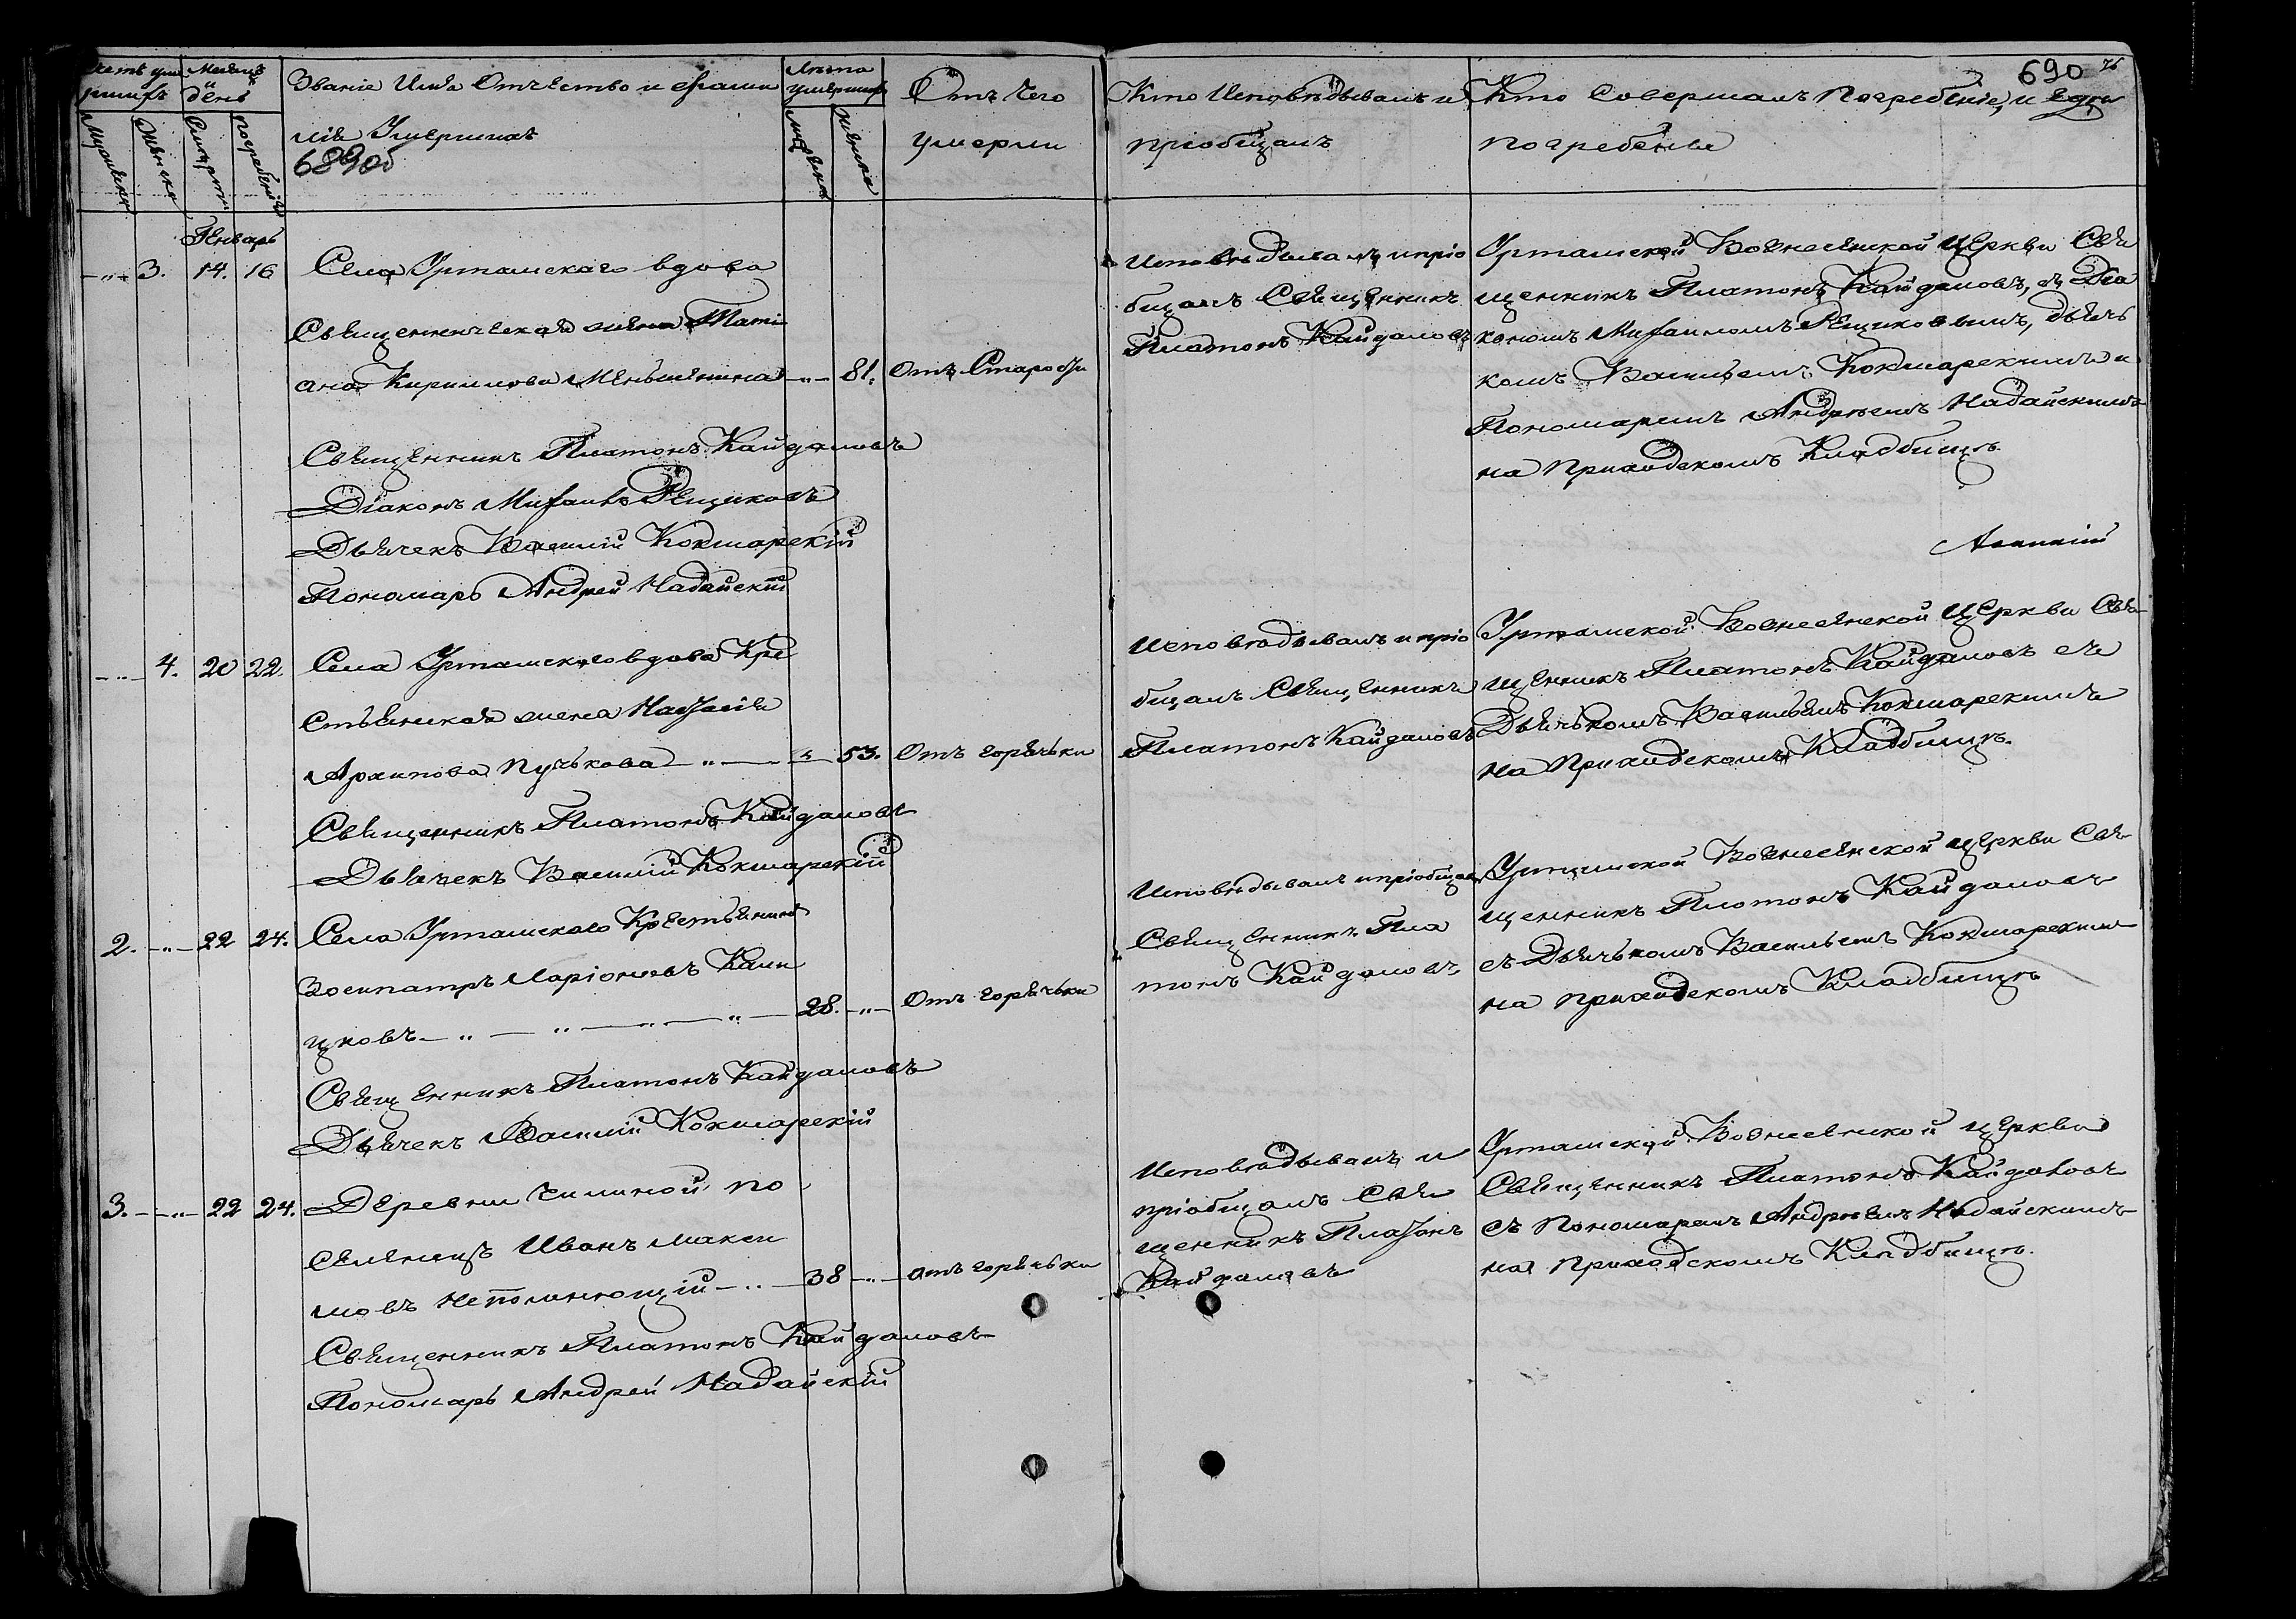 690
Счетъ уме
ршихъ
Месецъ
и
день
Званіе Имя Отчество и фами
лія Умершихъ
689об
Лета
умершихъ
Отъ Чего
умерли
Кто Исповѣдывалъ и
пріобщалъ
Кто Совершалъ Погребеніе, и Где
погребены
Мужеска
Женска
Смерти
погребенія
Мужеска
Женска
Генварь
3. 14. 16
Села Урташскаго вдова
Священническая жена Тати
ана Кириллова Меньшенина
81.
Отъ Старости
Исповѣдывалъ и пріо
бщалъ Священникъ
Платонъ Кайдаловъ
Урташской Вознесенской Церкви Свя
щенникъ Платонъ Кайдаловъ, съ Діа
кономъ Михаиломъ Рещиковымъ, дьяч
комъ Васильемъ Кокшарскимъ и
Пономаремъ Андреемъ Надайскимъ
на Приходскомъ Кладбищѣ.
Священникъ Платонъ Кайдаловъ
Діаконъ Михаилъ Рещиковъ
Дьячекъ Василій Кокшарскій
Пономарь Андрей Надайскій
4. 20 22.
Села Урташскаго вдова Кре
стьянская жена Наталія
Архипова Пучькова
53.
Отъ горячьки
Исповѣдывалъ и пріо
бщалъ Священникъ
Платонъ Кайдаловъ
Урташской Вознесенской Церкви Свя-
щенникъ Платонъ Кайдаловъ съ
Дьячькомъ Васильемъ Кокшарскимъ
на Приходскомъ Кладбищѣ.
Священникъ Платонъ Кайдаловъ
Дьячекъ Василій Кокшарскій
2. 22 24.
Села Урташскаго Крестьянинъ
Зосипатръ Ларіоновъ
28.
Отъ горячьки
Исповѣдывалъ и пріобщалъ
Священникъ Пла
тонъ Кайдаловъ
Урташской Вознесенской церкви Свя-
щенникъ Платонъ Кайдаловъ
съ Дьячькомъ Васильемъ Кокшарскимъ
на приходскомъ Кладбищѣ
Священникъ Платонъ Кайдаловъ
Дьячекъ Василій Кокшарскій
3. 22 24.
Деревни Чилиной по
селенецъ Иванъ Макси
мовъ Непомнющій
38
отъ горячьки
Исповѣдывалъ и
пріобщалъ Свя
щенникъ Платонъ
Кайдаловъ
Урташской Вознесенской церкви
Священникъ Платонъ Кайдаловъ
съ Пономаремъ Андреемъ Надайскимъ
на Приходскомъ Кладбищѣ.
Священникъ Платонъ Кайдаловъ
Пономарь Андрей Надайскій